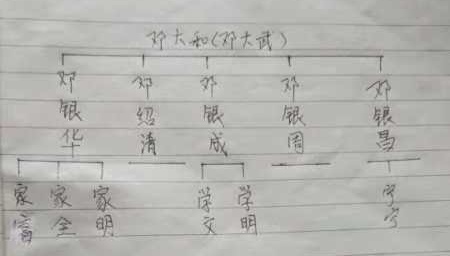 邓大和(邓大武)
邓银华 邓绍清 邓银成 邓银周 邓银昌
家富 家全 家明 学文 学明 宁宁